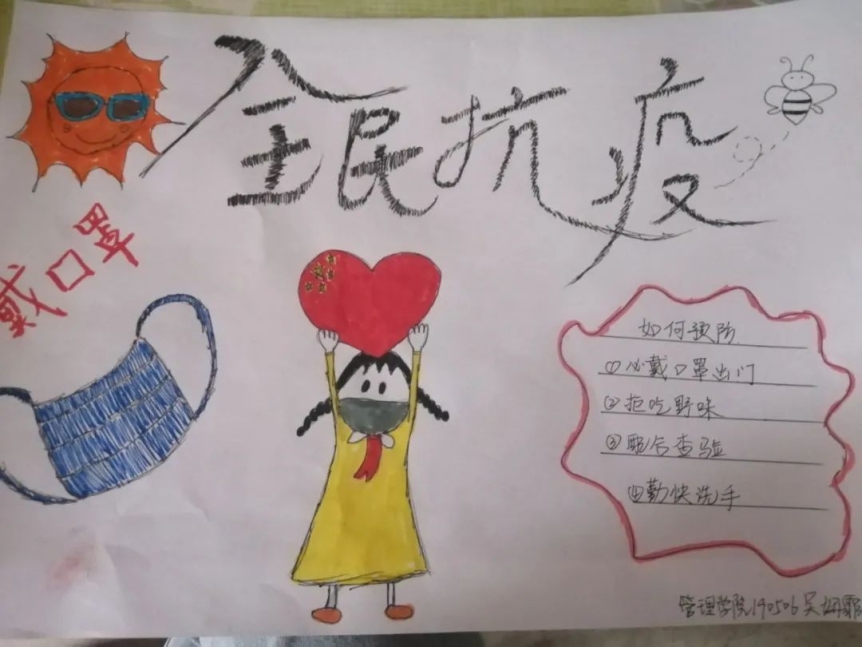 全民抗疫
戴口罩
如何预防
①必戴口罩出门
②拒吃野味
③配合查验
④勤快洗手
管理学院190506吴